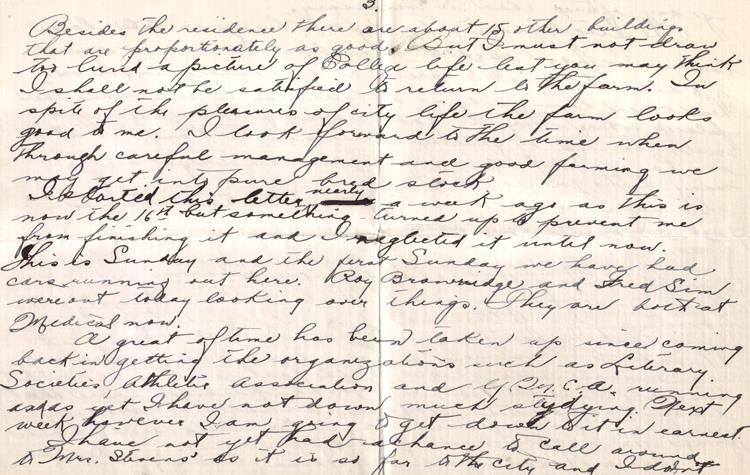 3.
Besides the residence there are about 15 other buildings
that are proportionately as good. But I must not draw
too lurid a picture of College life lest you may think
I shall not be satisfied to return to the farm. In
spite of the pleasures of city life the farm looks
good to me. I look forward to the time when
through careful management and good farming we
may get into pure bred stock
I started this letter nearly a week ago as this is
now the 16th but something turned up to prevent me
from finishing it and I neglected it until now.
This is Sunday and the first Sunday we have had
cars running out here. Roy Brownridge and Fred Sim
were out today looking over things. They are both at
Medical now.
A great of time has been taken up since coming
back in getting the organizations such as Literary
Societies, Athletic Association and Y.M.C.A. running
as yet I have not down much studying. Next
week however I am going to get down to it in earnest.
I have not yet had a chance to call around
to Mrs. Stevens' as it is so far to the city and I